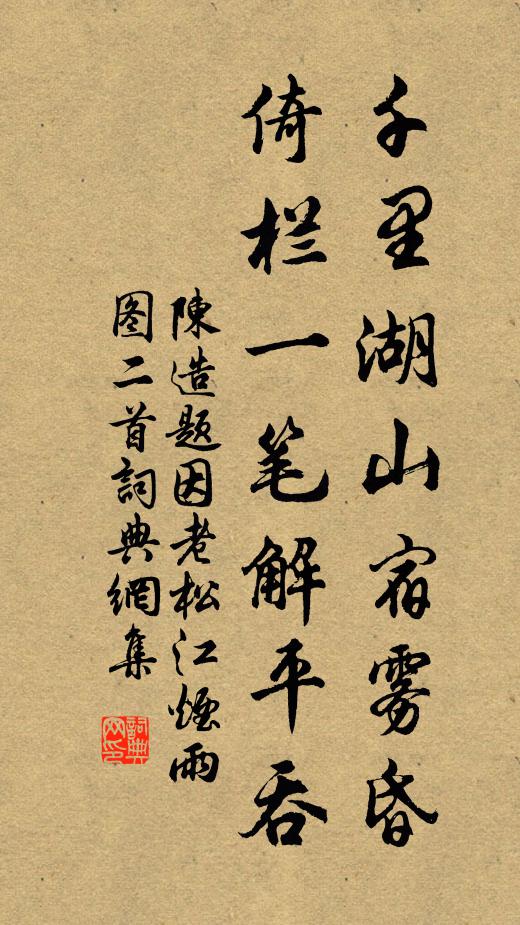 千里湖山宿雾昏
倚栏一笔解平吞
陳造题因老松江煙雨
图二首詞典網集
詞典网印